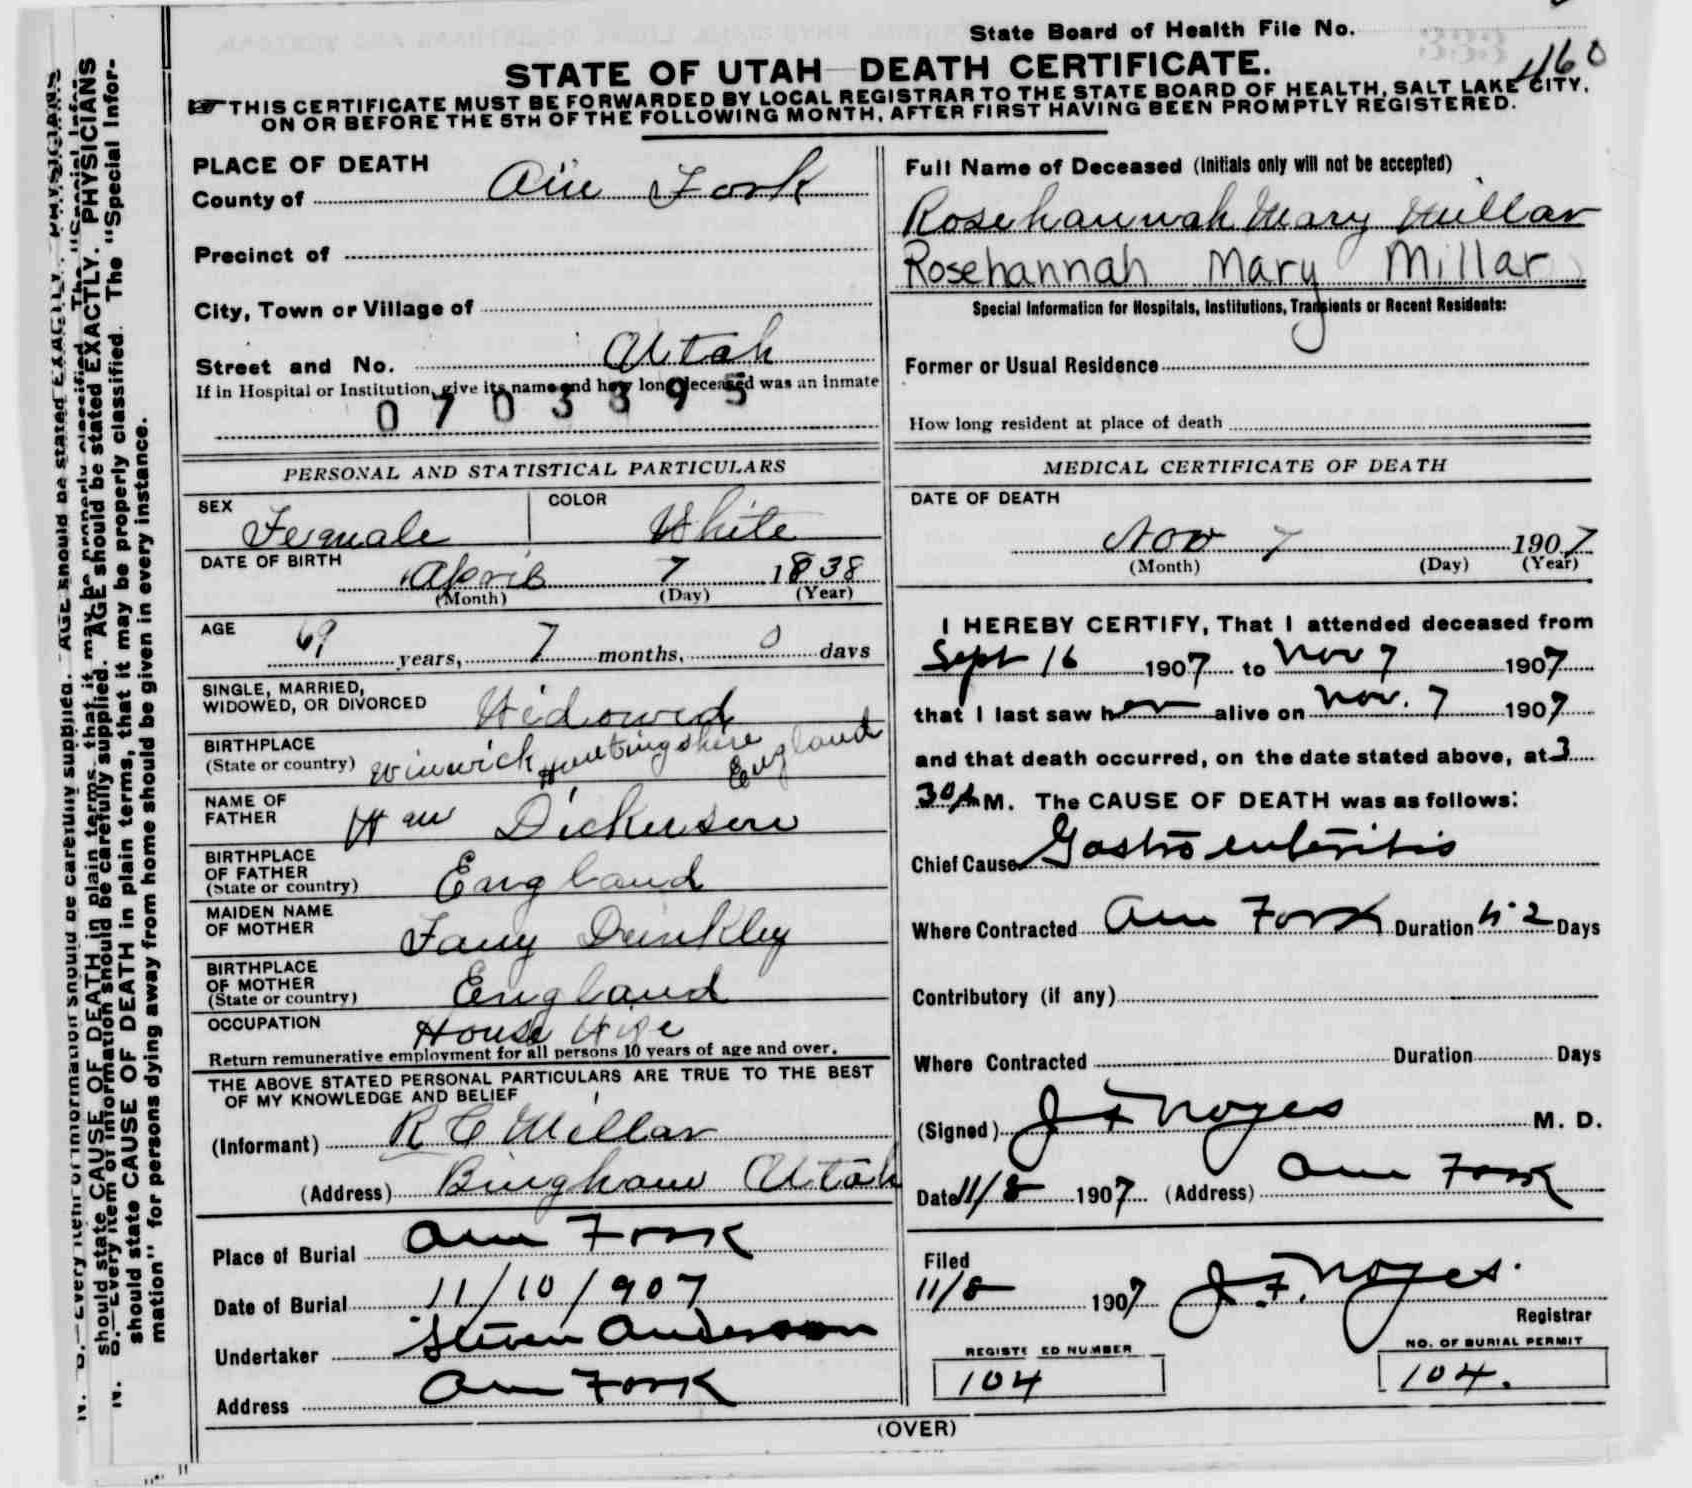 State Board of Health File No.
1160
STATE OF UTAH—DEATH CERTIFICATE.
THIS CERTIFICATE MUST BE FORWARDED BY LOCAL REGISTRAR TO THE STATE BOARD OF HEALTH, SALT LAKE CITY,
ON OR BEFORE THE 5TH OF THE FOLLOWING MONTH, AFTER FIRST HAVING BEEN PROMPTLY REGISTERED.
PLACE OF DEATH
County of Am Fork
Precinct of
City, Town or Village of
Street and No. Utah
If in Hospital or Institution, give its name and how long deceased was an inmate
0703395
Full Name of Deceased (Initials only will not be accepted)
Rosehannah Mary Millar
Rosehannah Mary Millar
Special Information for Hospitals, Institutions, Transients or Recent Residents:
Former or Usual Residence
How long resident at place of death
PERSONAL AND STATISTICAL PARTICULARS
SEX Female COLOR White
DATE OF BIRTH April 7 1838
(Month) (Day) (Year)
AGE 69 years, 7 months, 0 days
SINGLE, MARRIED,
WIDOWED, OR DIVORCED Widowed
BIRTHPLACE
(State or country) Winwick Huntingshire England
NAME OF
FATHER Wm Dickerson
BIRTHPLACE
OF FATHER
(State or country) England
MAIDEN NAME
OF MOTHER Fany Drinkley
BIRTHPLACE
OF MOTHER
(State or country) England
OCCUPATION House Wife
Return remunerative employment for all persons 10 years of age and over.
THE ABOVE STATED PERSONAL PARTICULARS ARE TRUE TO THE BEST
OF MY KNOWLEDGE AND BELIEF
(Informant) R C Millar
(Address) Bingham Utah
Place of Burial Am Fork
Date of Burial 11/10/907
Undertaker Steven Anderson
Address Am Fork
MEDICAL CERTIFICATE OF DEATH
DATE OF DEATH
Nov 7 1907
(Month) (Day) (Year)
I HEREBY CERTIFY, That I attended deceased from
Sept 16 1907 to Nov 7 1907
that I last saw her alive on Nov. 7 1907
and that death occurred, on the date stated above, at 3
30 P M. The CAUSE OF DEATH was as follows:
Chief Cause Gastro enteritis
Where Contracted Am Fork Duration 52 Days
Contributory (if any)
Where Contracted Duration Days
(Signed) J F Noyes M. D.
Date 11/8 1907 (Address) Am Fork
Filed
11/8 1907 J. F. Noyes.
Registrar
REGISTERED NUMBER
104
NO. OF BURIAL PERMIT
104.
(OVER)
N. B.—Every item of information should be carefully supplied. AGE should be stated EXACTLY. PHYSICIANS
should state CAUSE OF DEATH in plain terms, that it may be properly classified. The "Special Infor-
N. B.—Every item of information should be carefully supplied. AGE should be stated EXACTLY. PHYSICIANS
should state CAUSE OF DEATH in plain terms, that it may be properly classified. The "Special Infor-
mation" for persons dying away from home should be given in every instance.